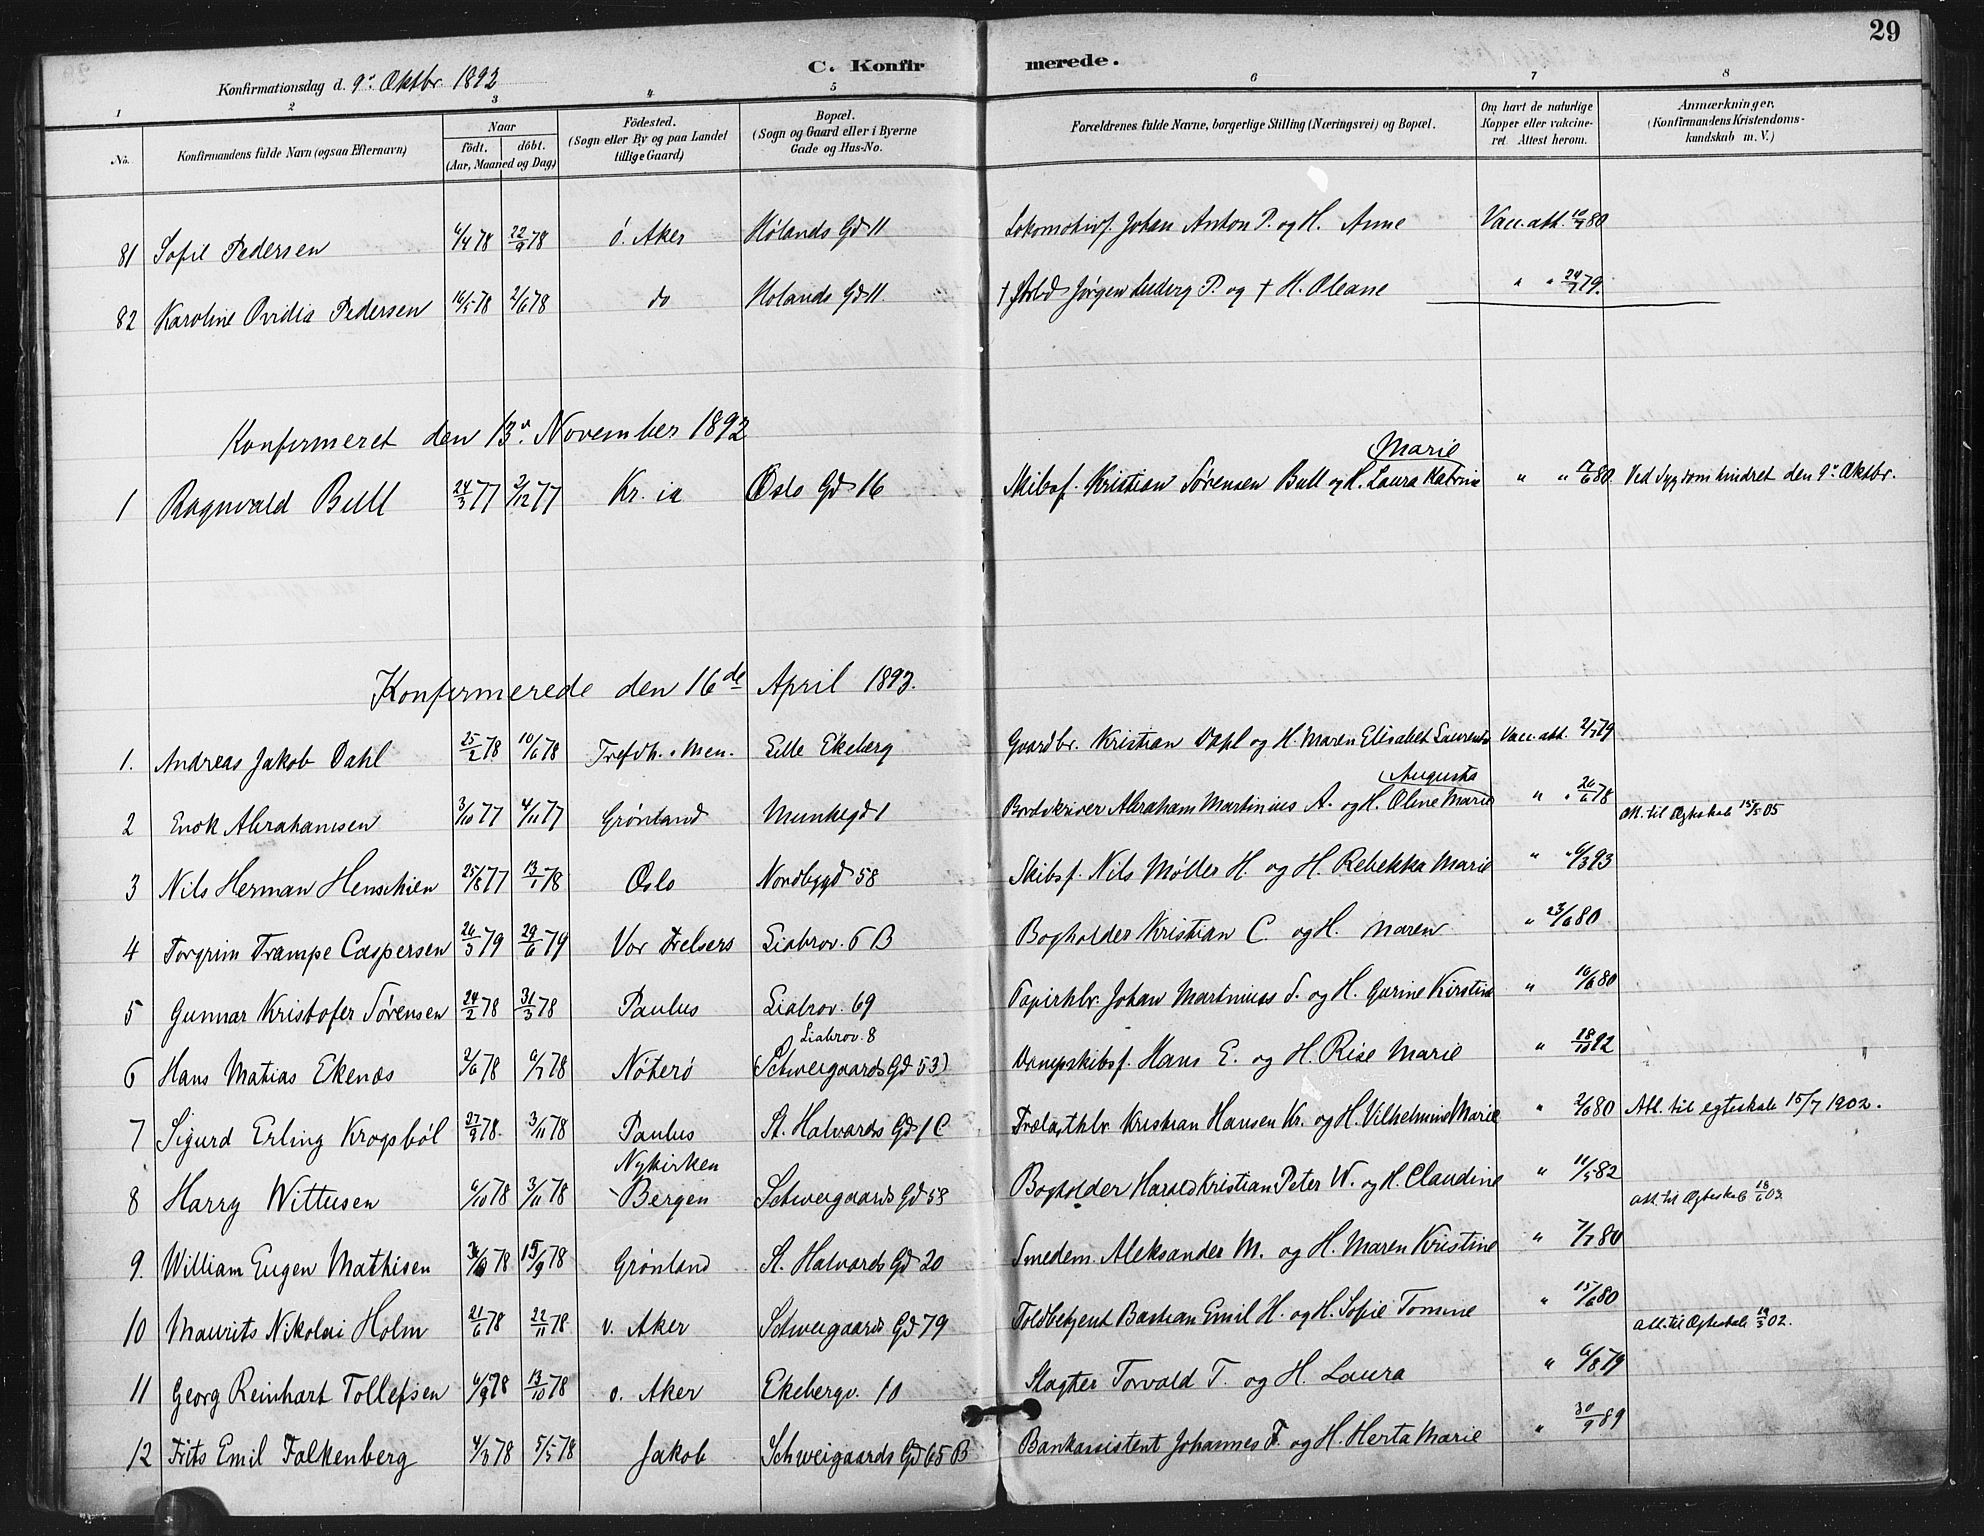 29
C. Konfirmerede.
Konfirmationsdag d. 9de Oktbr. 1892
1 2 3 4 5 6 7 8
No. Konfirmandens fulde Navn (ogsaa Efternavn) Naar født. døbt. (Aar, Maaned og Dag) Födested. (Sogn eller By og paa Landet tillige Gaard) Bopæl. (Sogn og Gaard eller i Byerne Gade og Hus-No. Forældrenes fulde Navne, borgerlige Stilling (Næringsvei) og Bopæl. Om havt de naturlige Kopper eller vakcineret. Attest herom. Anmærkninger. (Konfirmandens Kristendomskundskab m. V.)
81 Sofie Pedersen 6/4 78 22/9 78 ö. Aker Hølands Gd 11 Lokomotivf. Johan Anton P. og H. Anne Vacc. att. 80
82 Karoline Ovidia Pedersen 16/5 78 2/6 78 do Holands Gd 11. † Jørgen Ludvig P. og † H. Oleane " " 79.
Konfirmeret den 13de November 1892
1 Ragnvald Bull 24/3 77 2/12 77 Kr. ia Oslo Gd 16 Skibsf. Kristian Sørensen Bull og H. Laura Katrine Marie " " 80 Ved Sygdom hindret den 9de Oktbr.
Konfirmerede den 16de April 1893.
1. Andreas Jakob Dahl 25/2 78 10/6 78 Trefdh. Men. Lille Ekeberg Gaardbr. Kristian Dahl og H. Maren Elisabet Vacc. att. 79
2 Enok Abrahamsen 3/10 77 4/11 77 Grønland Munkegd 1 Abraham Martinius A. og H. Oline Marie Augusta " " 26/6 78 att. til Ægteskab 15/5 05
3 Nils Herman Henschien 25/8 77 13/1 78 Oslo Nordbygd 58 Skibsf. Nils Møller H. og H. Rebekka Marie " " 6/3 93
4 Torgrim Trampe Caspersen 26/3 79 29/6 79 Vor Frelsers Liabrov. 6 B Bogholder Kristian C. og H. Maren " 23/6 80
5 Gunnar Kristofer Sørensen 24/2 78 31/3 78 Paulus Liabrov. 69 Papirhlr. Johan Martinius S. og H. Gurine Kirstine " 10/6 80
6 Hans Matias Ekenæs 2/6 78 6/7 78 Nøterø Liabrov. 8 (Schweigaards Gd 53) Dampskibsf. Hans E. og H. Rise Marie " 18/10 92
7 Sigurd Erling Krogsböl 27/9 78. 3/11 78 Paulus St. Halvards Gd 1 C Trælasthlr Kristian Hansen Kr. og H. Vilhelmine Marie " 2/6 80 Att. til egteskab 15/7 1902.
8 Harry Wittusen 6/10 78 3/11 78 Nykirken Bergen Schweigaards Gd 58 Bogholder Harald Kristian Peter W. og H. Claudine " 11/5 82 att. til Ægteskab 18/6 03.
9. William Eugen Mathisen 78 15/9 78 Grønland St. Halvards Gd 20 Smedem. Aleksander M. og H. Maren Kristine " 7/7 80
10 Maurits Nikolai Holm 21/6 78 22/11 78 v. Aker Schweigaards Gd 79 Toldbetjent Bastian Emil H. og H. Sofie Tomine " 15/6 80 att. til Ægteskab 02.
11 Georg Reinhart Tollefsen 6/9 78 13/10 78 o. Aker Ekebergv. 10 Slagter Torvald T. og H. Laura " 6/8 79
12 Frits Emil Falkenberg 4/3 78 5/5 78 Jakob Schweigaards Gd 65 B Bankassistent Johannes F. og H. Herta Marie " 30/9 89